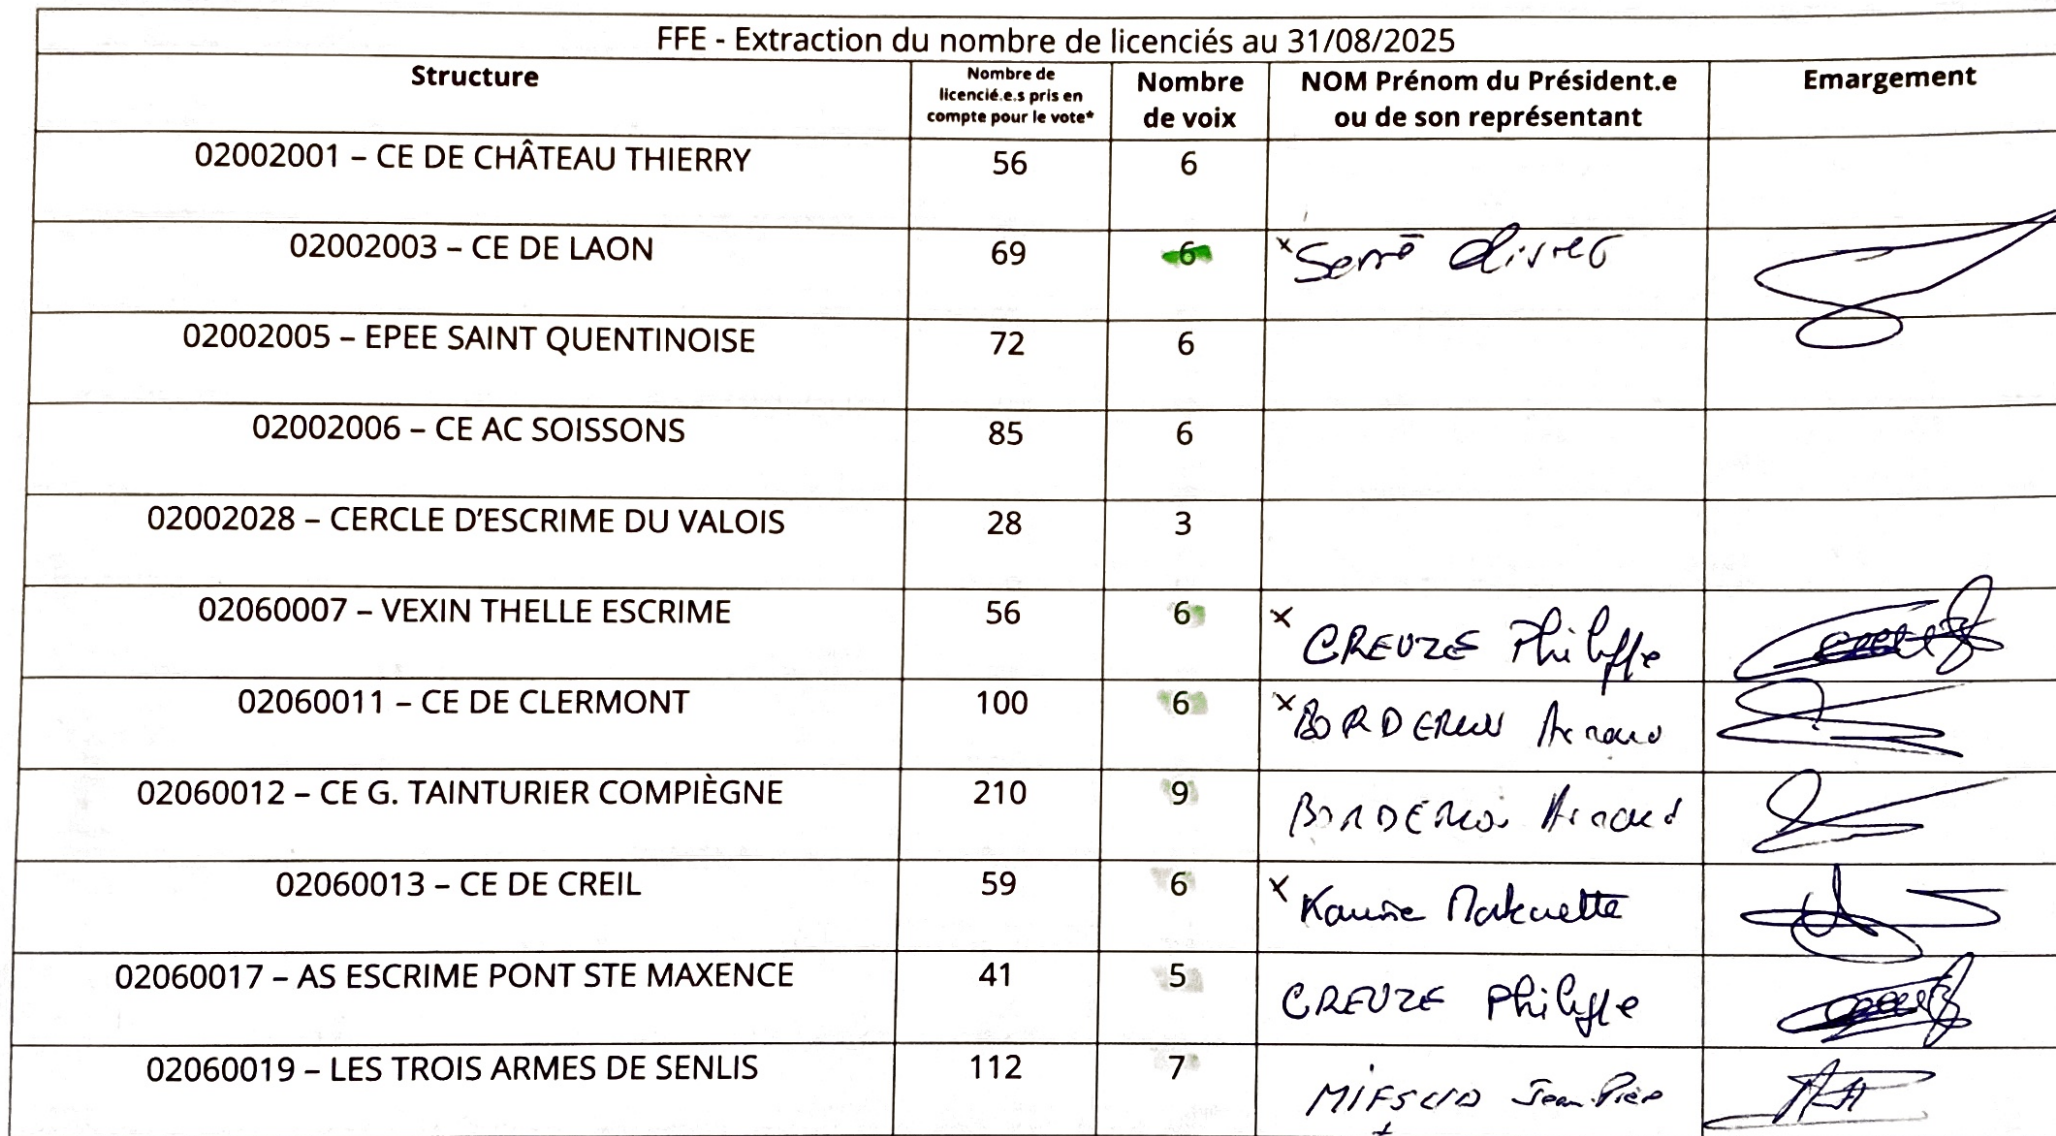 FFE - Extraction du nombre de licenciés au 31/08/2025
Structure
Nombre de
licencié.e.s pris en
compte pour le vote*
Nombre
de voix
NOM Prénom du Président.e
ou de son représentant
Emargement
02002001 – CE DE CHÂTEAU THIERRY 56 6
02002003 – CE DE LAON 69 6 x
02002005 – EPEE SAINT QUENTINOISE 72 6
02002006 – CE AC SOISSONS 85 6
02002028 – CERCLE D'ESCRIME DU VALOIS 28 3
02060007 – VEXIN THELLE ESCRIME 56 6 x CREUZE Philippe
02060011 – CE DE CLERMONT 100 6 x Arnaud
02060012 – CE G. TAINTURIER COMPIÈGNE 210 9 Arnaud
02060013 – CE DE CREIL 59 6 x
02060017 – AS ESCRIME PONT STE MAXENCE 41 5 CREUZE Philippe
02060019 – LES TROIS ARMES DE SENLIS 112 7 MIFSUD Jean-Pierre